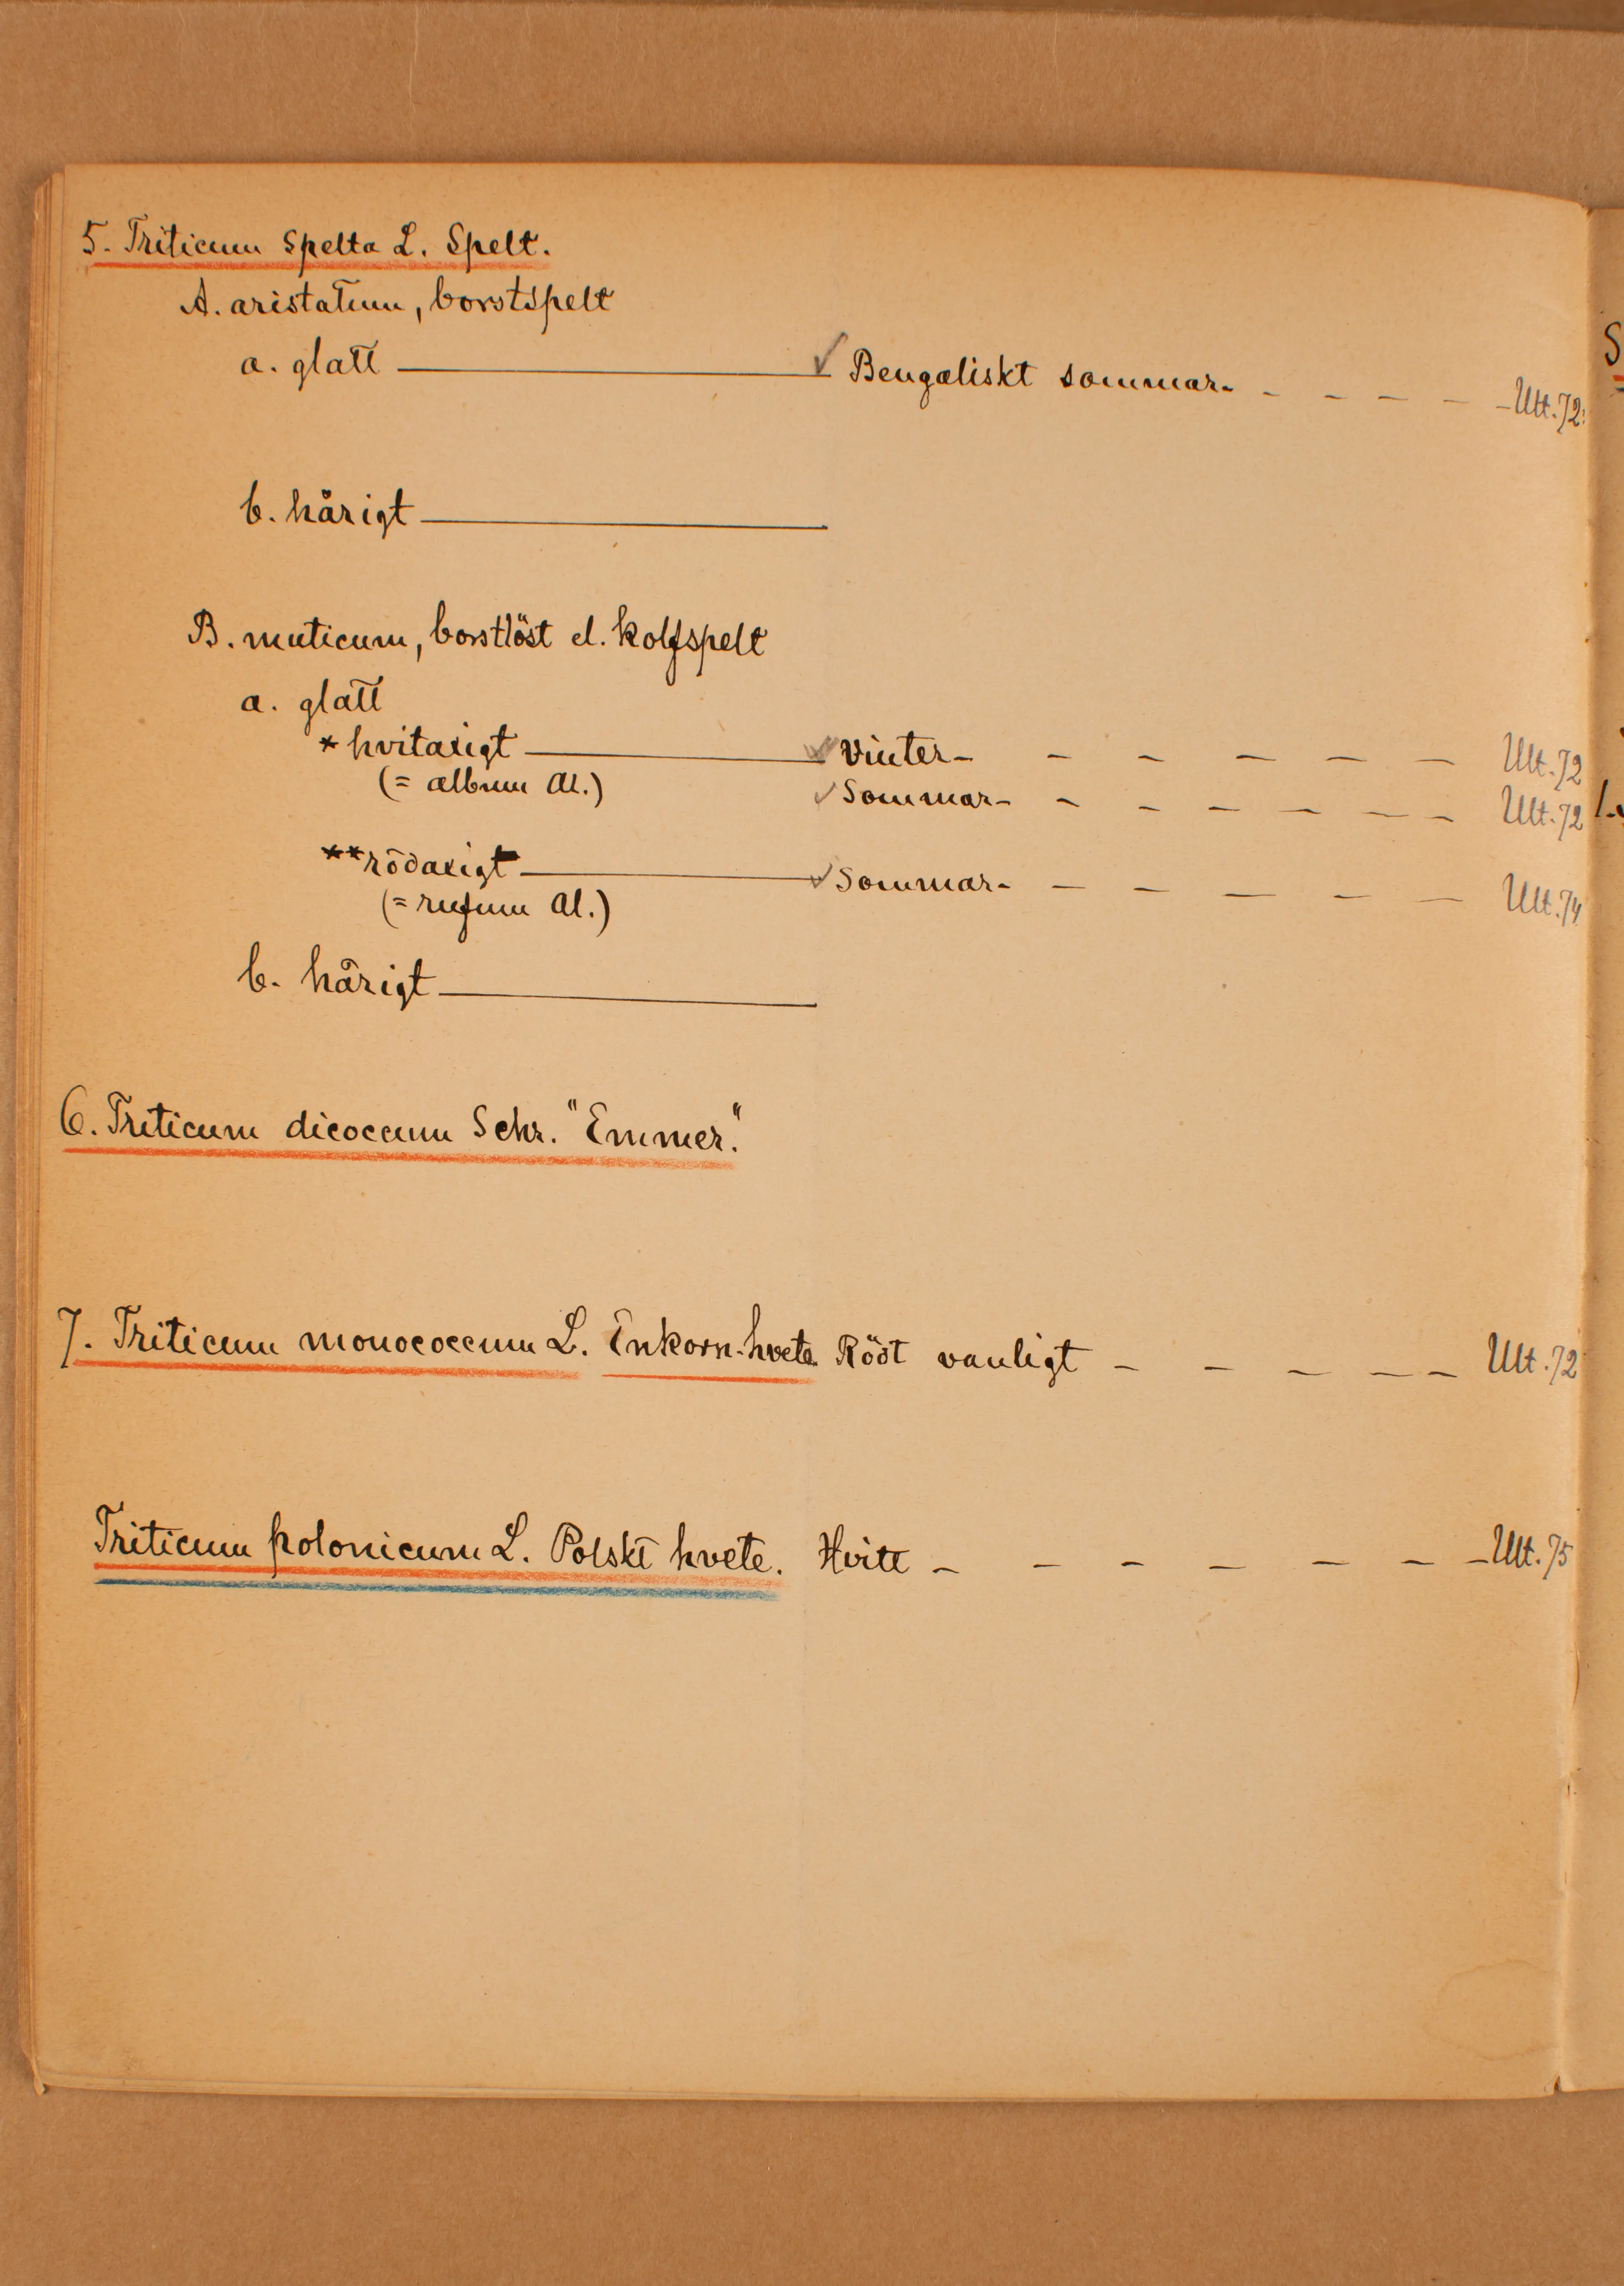 5. Triticum Spelta L. Spelt.
A. aristatum, borstspelt
a. glatt ——— ✓ Bengaliskt sommar- - - - - - Ult. 72
b. hårigt ———
B. muticum, borstlöst el. kolfspelt
a. glatt
* hvitaxigt ——— ✓ Vinter- - - - - - Ult. 72
(= album Al.)
✓ Sommar- - - - - - - Ult. 72
** rödaxigt ——— ✓ Sommar- - - - - - Ult. 74
(= rufum Al.)
b. hårigt ———
6. Triticum dicoccum Schr. "Emmer."
7. Triticum monococcum L. Enkorn-hvete Rödt vanligt - - - - - Ult. 72
Triticum polonicum L. Polskt hvete. Hvitt - - - - - - - Ult. 75